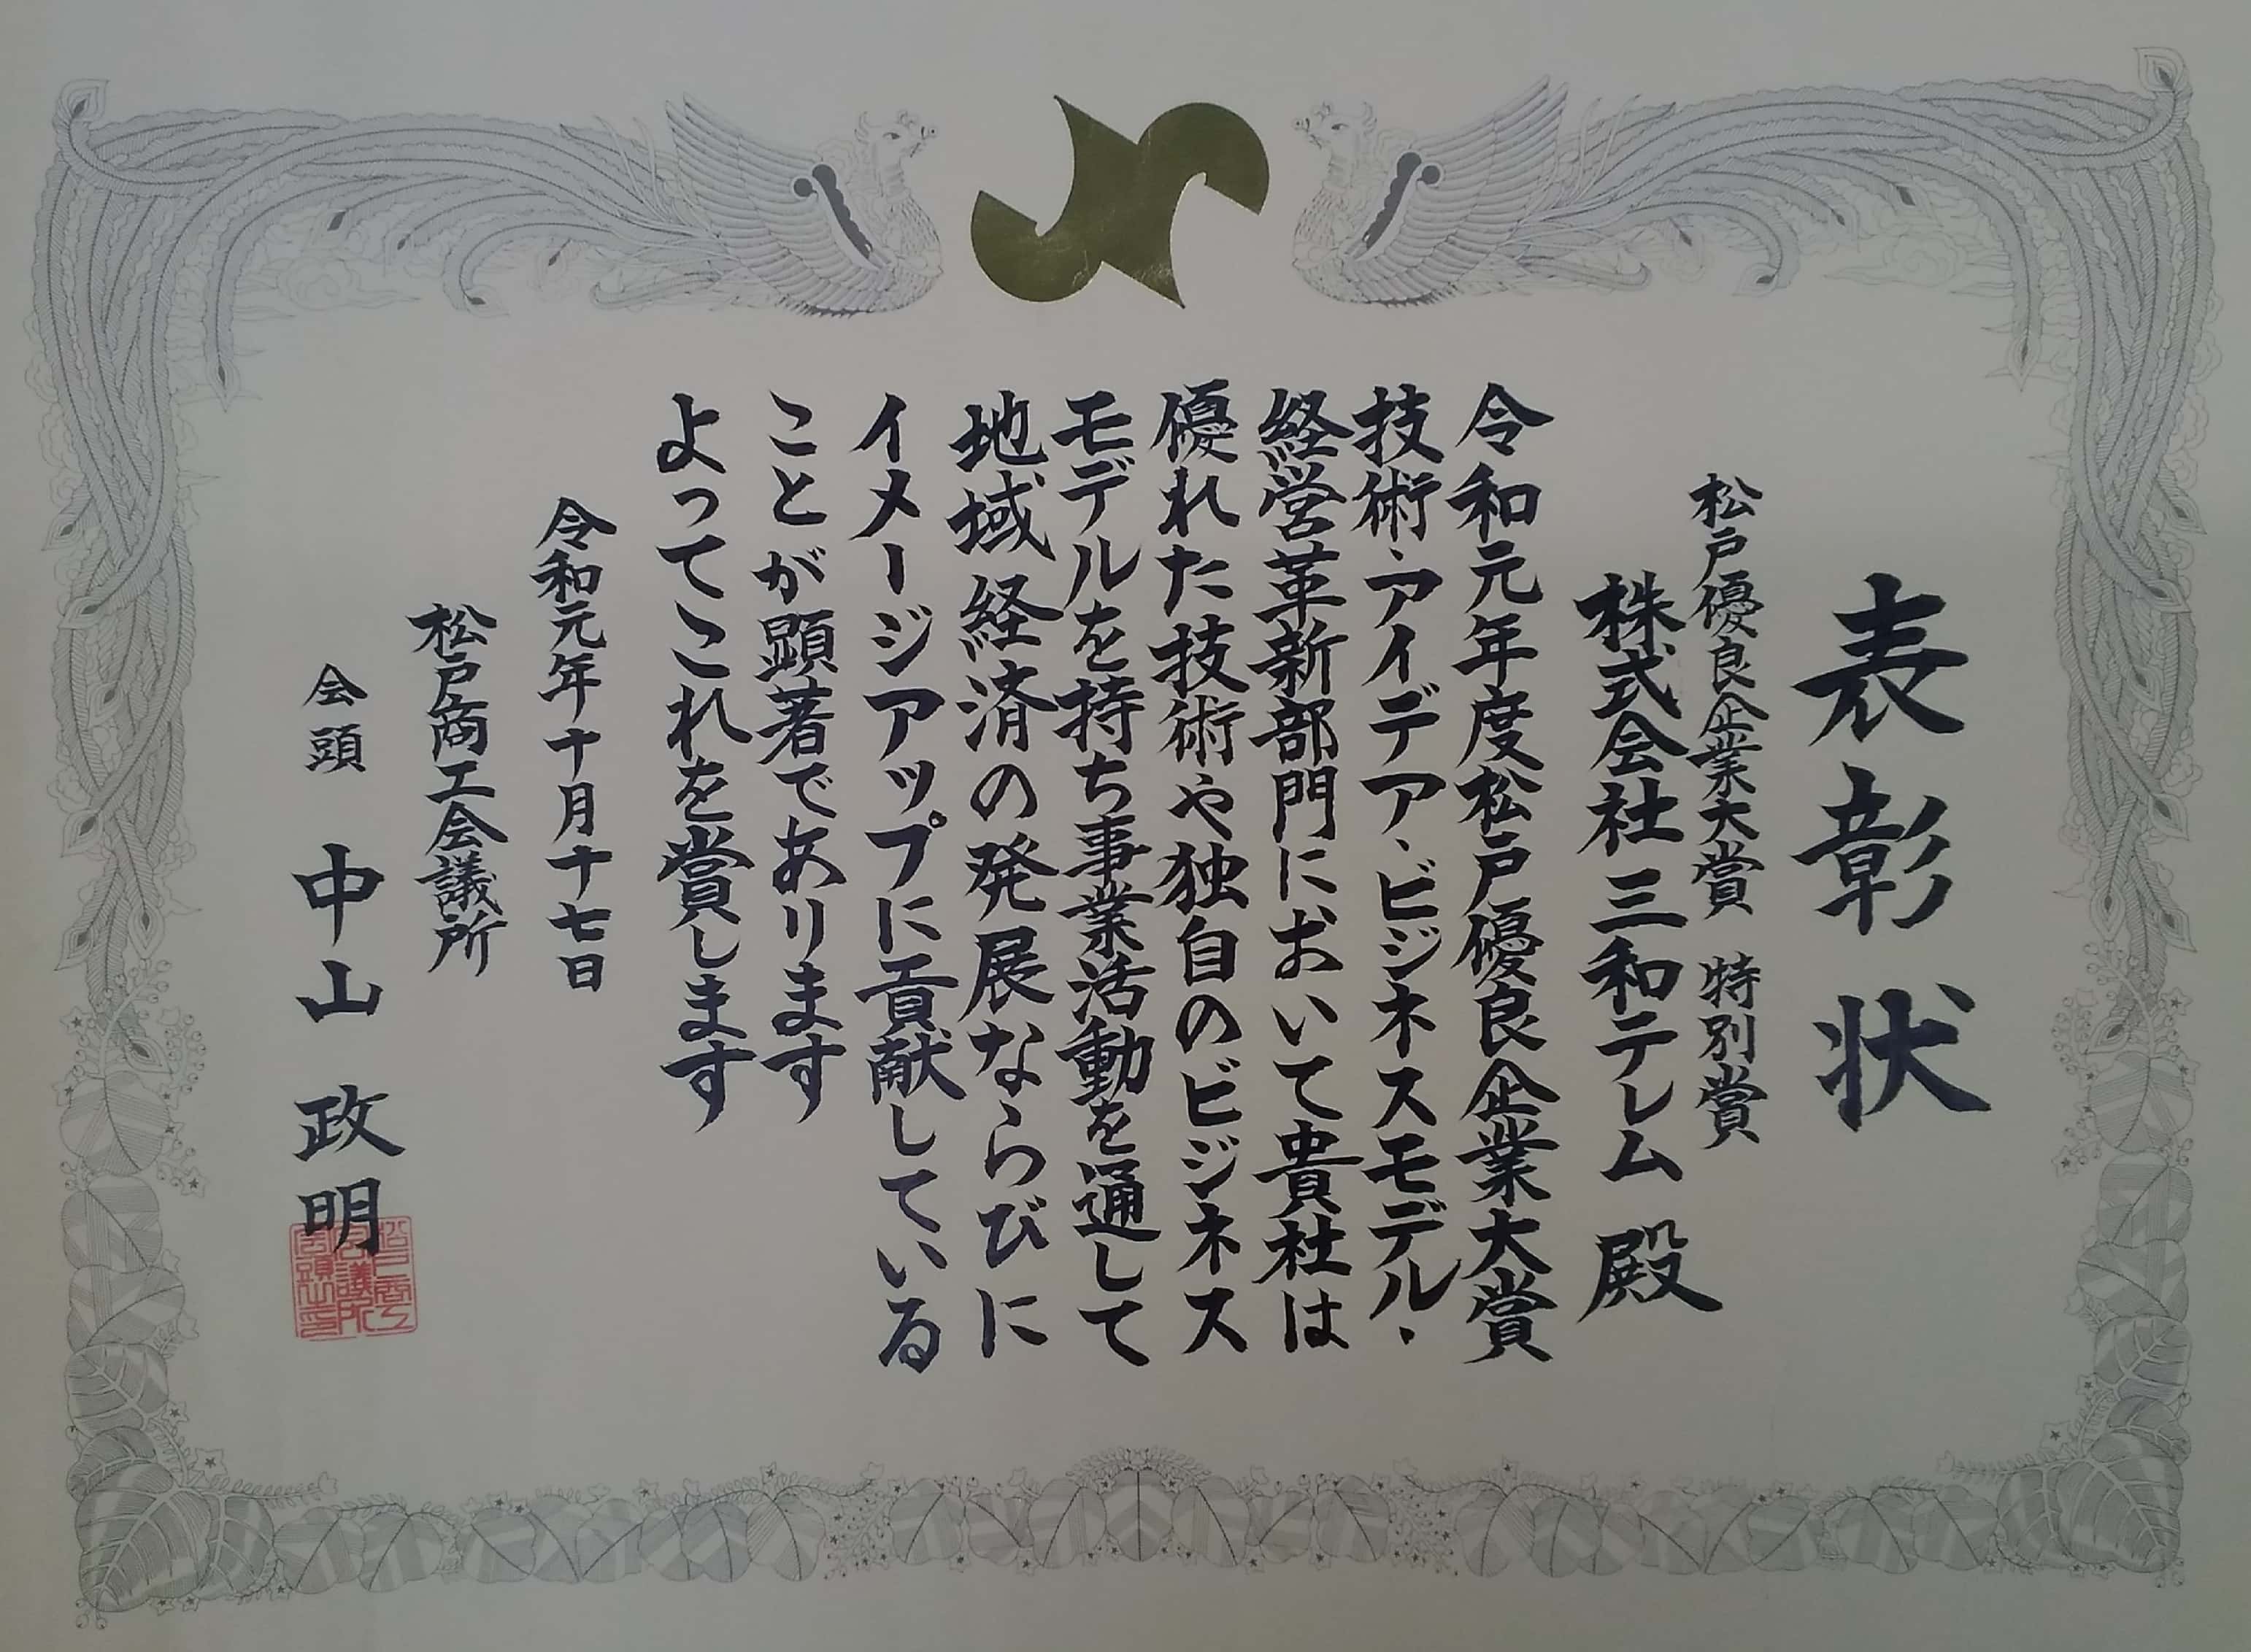 表彰状
松戸優良企業大賞 特別賞
株式会社三和テレム 殿
令和元年度松戸優良企業大賞
技術・アイデア・ビジネスモデル・
経営革新部門において貴社は
優れた技術や独自のビジネス
モデルを持ち事業活動を通して
地域経済の発展ならびに
イメージアップに貢献している
ことが顕著であります
よってこれを賞します
令和元年十月十七日
松戸商工会議所
会頭 中山政明
松戸商工
会議所
会頭之印